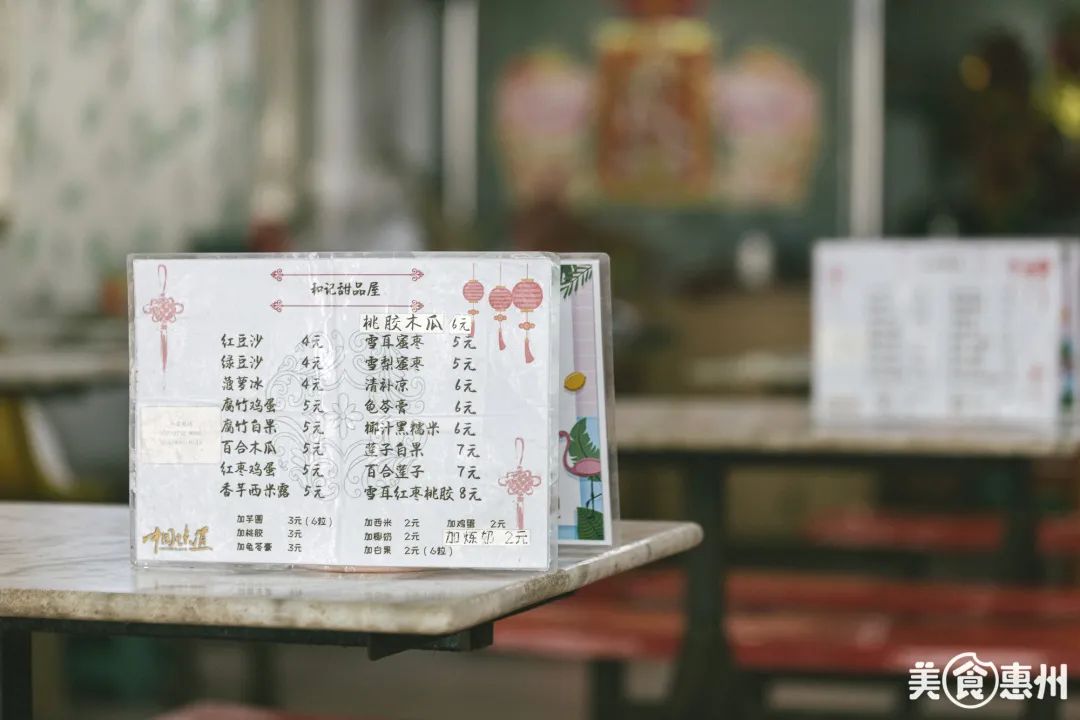 和记甜品屋
桃胶木瓜 6元
红豆沙 4元 雪耳蜜枣 5元
绿豆沙 4元 雪梨蜜枣 5元
菠萝冰 4元 清补凉 6元
腐竹鸡蛋 5元 龟苓膏 6元
腐竹白果 5元 椰汁黑糯米 6元
百合木瓜 5元 莲子白果 7元
红枣鸡蛋 5元 百合莲子 7元
香芋西米露 5元 雪耳红枣桃胶 8元
加芋圆 3元(6粒) 加西米 2元 加鸡蛋 2元
加桃胶 3元 加椰奶 2元 加炼奶 2元
加龟苓膏 3元 加白果 2元(6粒)
美食惠州